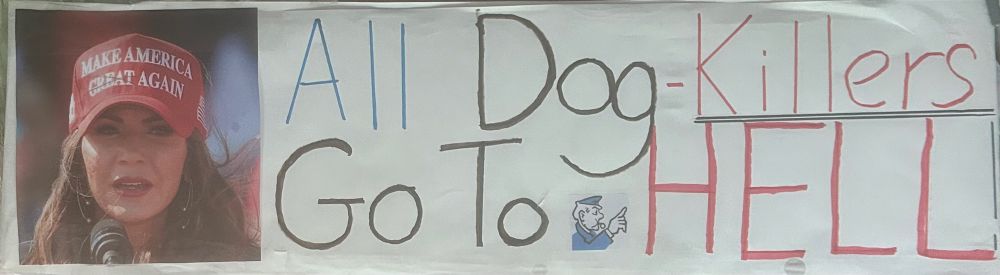 MAKE AMERICA
GREAT AGAIN
All Dog-Killers
Go To HELL